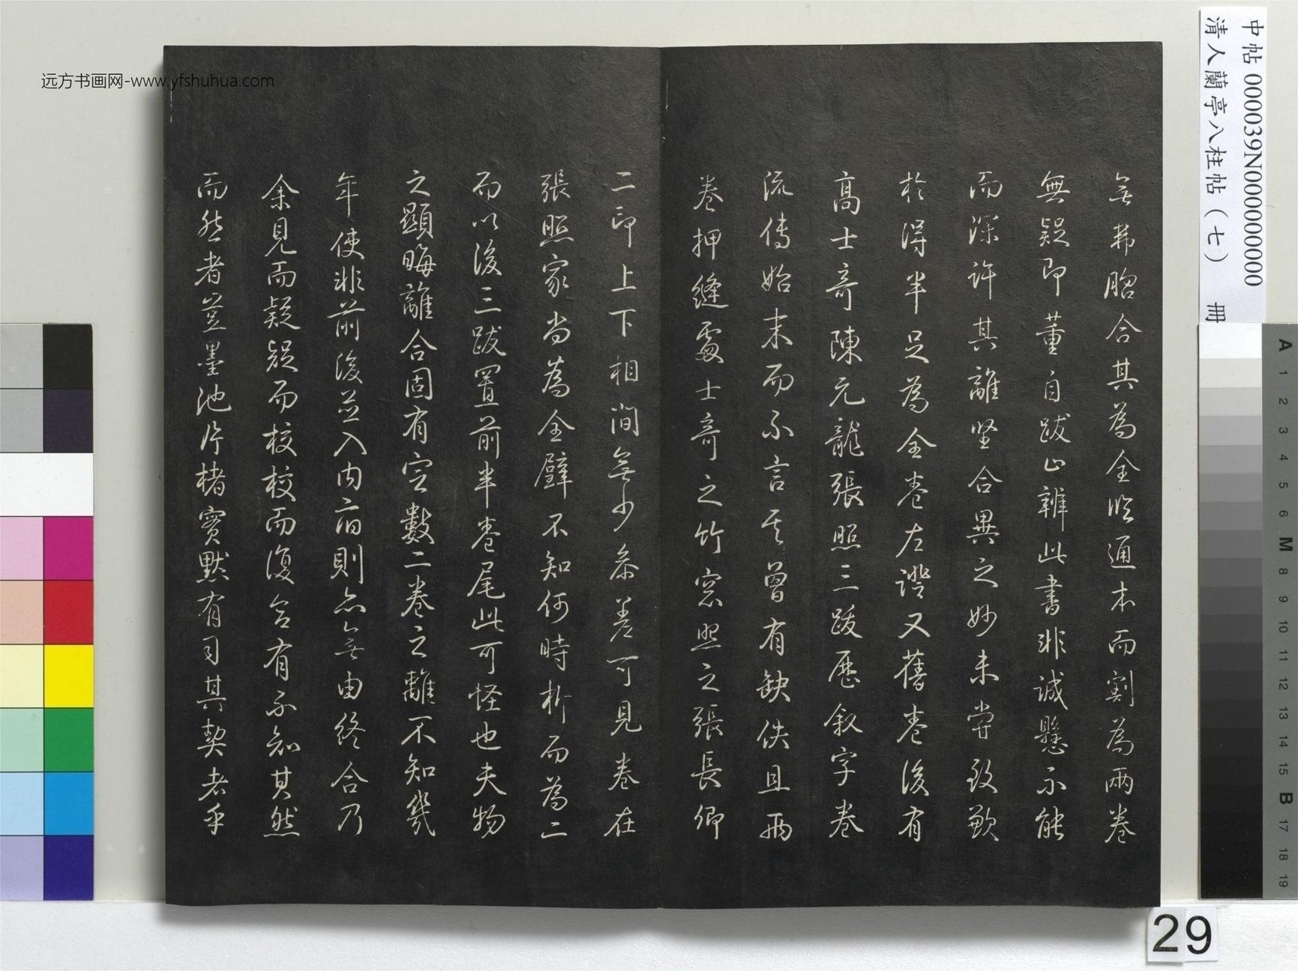 無弗脗合其為全此通本而割為兩卷
無疑即董自跋亦辨此書非誠懸不能
而深許其離堅合異之妙未嘗致歎
於得半足為全卷左證又舊卷後有
高士奇陳元龍張照三跋歷叙字卷
流傳始末而不言其曾有缺佚且兩
卷押縫處士奇之竹窓照之張長卿
二印上下相間無少參差可見卷在
張照家尚為全璧不知何時析而為二
而以後三跋置前半卷尾此可怪也夫物
之顯晦離合固有定數二卷之離不知幾
年使非前後並入內府則亦無由終合乃
余見而疑疑而校校而復合有不知其然
而然者豈墨池片楮寶默有司其契者乎
远方书画网-www.yfshuhua.com
中帖 000039N000000000
清人蘭亭八柱帖（七） 冊
A 1 2 3 4 5 6 M 8 9 10 11 12 13 14 15 B 17 18 19
29